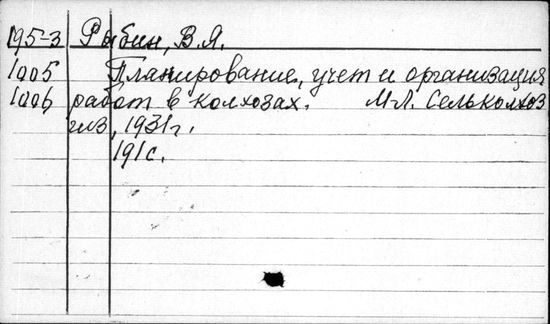 195-3 Рыбин, В.Я.
1005 Планирование, учет и организация
1006 работ в колхозах. М-Л. Сельколхоз
гиз, 1931г.
191с.